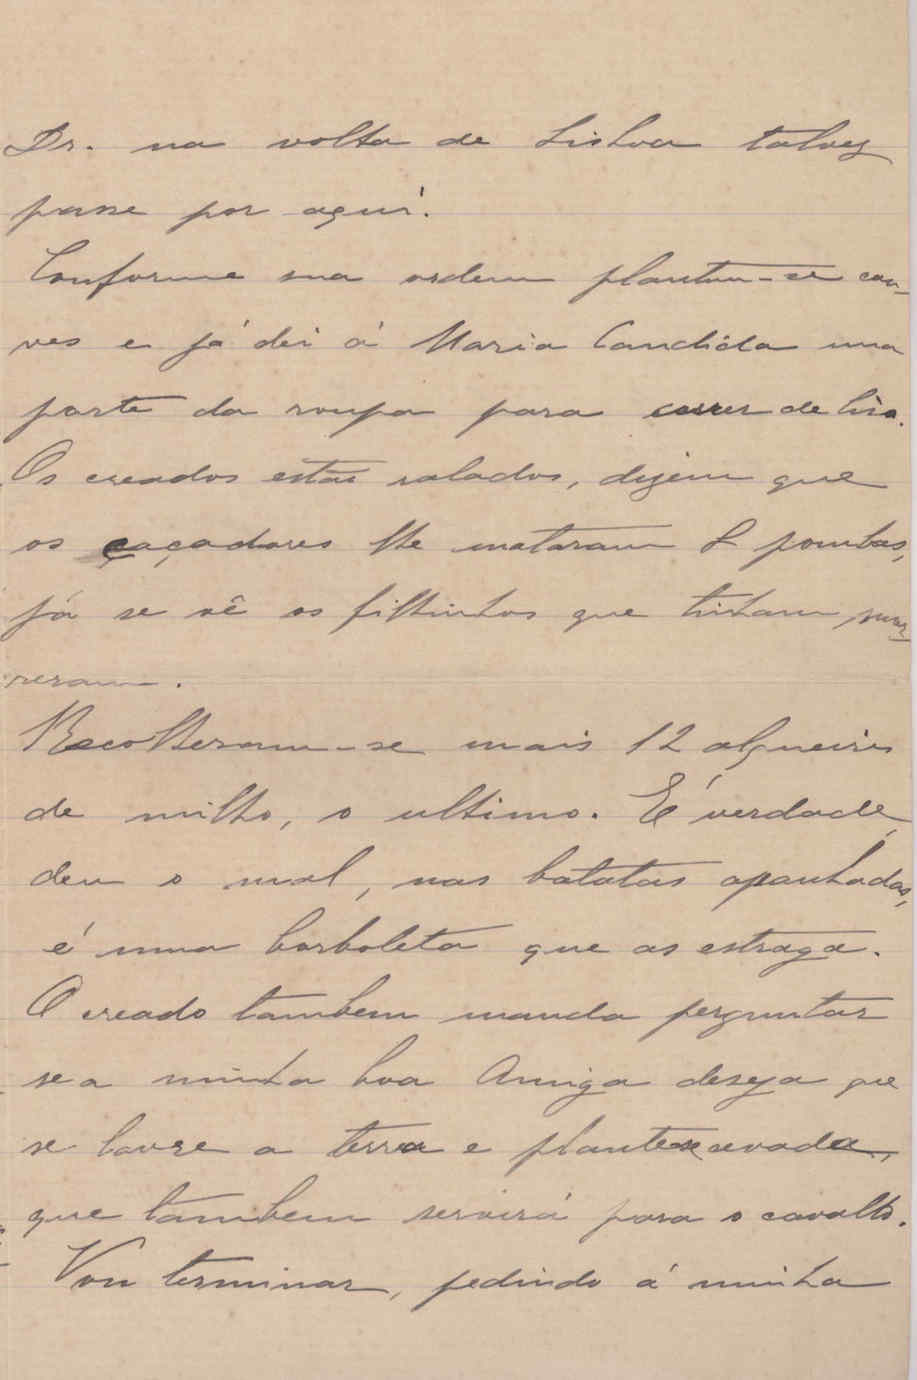 Dr. na volta de Lisboa talvez
passe por aqui.
Conforme sua ordem plantou-se cou-
ves e já dei á Maria Candida uma
parte da roupa para corar de lixa.
Os creados estão ralados, dizem que
os caçadores lhe mataram 8 pombas,
já se vê os filhinhos que tinham, mor-
reram.
Recolheram-se mais 12 alqueires
de milho, o ultimo. E' verdade,
deu o mal, nas batatas apanhadas,
é uma borboleta que as estraga.
O creado tambem manda perguntar
se a minha boa Amiga deseja que
se lavre a terra e plante cevada,
que tambem servirá para o cavallo.
Vou terminar, pedindo á minha